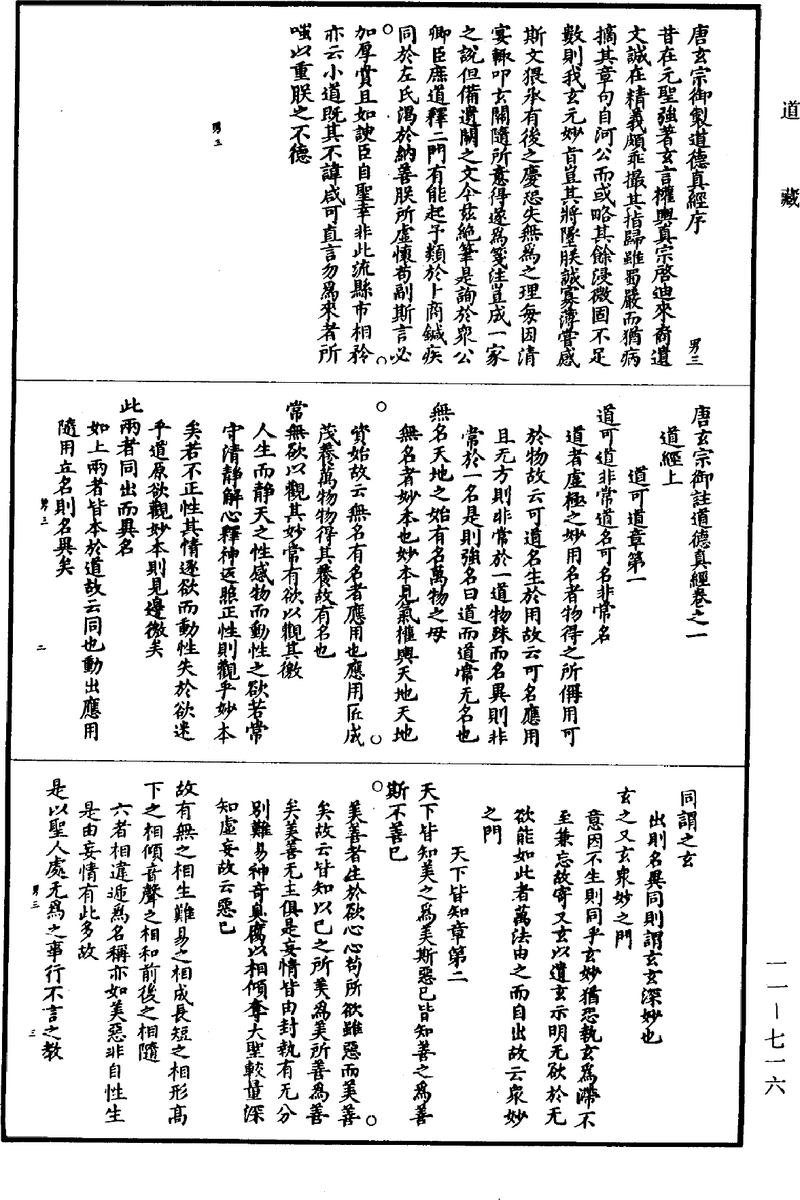 道藏
唐玄宗御製道德真經序
男三
昔在元聖強著玄言權輿真宗啓迪來裔遺
文誠在精義頗乖撮其指歸雖蜀嚴而猶病
摘其章句自河公而或略其餘浸微固不足
數則我玄元妙旨豈其將墜朕誠寡薄嘗感
斯文猥承有後之慶恐失無爲之理每因清
宴輙叩玄關隨所意得遂爲箋注豈成一家
之說但備遺闕之文今兹絶筆是詢於衆公
卿臣庶道釋二門有能起予類於卜商鍼疾
同於左氏渴於納善朕所虛懷苟副斯言必
加厚賞且如諛臣自聖幸非此流縣市相矜
亦云小道既其不諱咸可直言勿爲來者所
嗤以重朕之不德
男三
唐玄宗御註道德真經卷之一
道經上
道可道章第一
道可道非常道名可名非常名
道者虛極之妙用名者物得之所偁用可
於物故云可道名生於用故云可名應用
且无方則非常於一道物殊而名異則非
常於一名是則強名曰道而道常无名也
無名天地之始有名萬物之母
無名者妙本也妙本見氣權輿天地天地
資始故云無名有名者應用也應用匠成
茂養萬物物得其養故有名也
常無欲以觀其妙常有欲以觀其徼
人生而靜天之性感物而動性之欲若常
守清靜解心釋神返照正性則觀乎妙本
矣若不正性其情逐欲而動性失於欲迷
乎道原欲觀妙本則見邊徼矣
此兩者同出而異名
如上兩者皆本於道故云同也動出應用
隨用立名則名異矣
男三
二
同謂之玄
出則名異同則謂玄玄深妙也
玄之又玄衆妙之門
意因不生則同乎玄妙猶恐執玄爲滯不
至兼忘故寄又玄以遣玄示明无欲於无
欲能如此者萬法由之而自出故云衆妙
之門
天下皆知章第二
天下皆知美之爲美斯惡已皆知善之爲善
斯不善已
美善者生於欲心心苟所欲雖惡而美善
矣故云皆知以己之所美爲美所善爲善
矣美善无主俱是妄情皆由封執有无分
別難易神奇臭腐以相傾奪大聖較量深
知虛妄故云惡已
故有無之相生難易之相成長短之相形高
下之相傾音聲之相和前後之相隨
六者相違遞爲名稱亦如美惡非自性生
是由妄情有此多故
是以聖人處无爲之事行不言之教
男三
三
一一—七一六